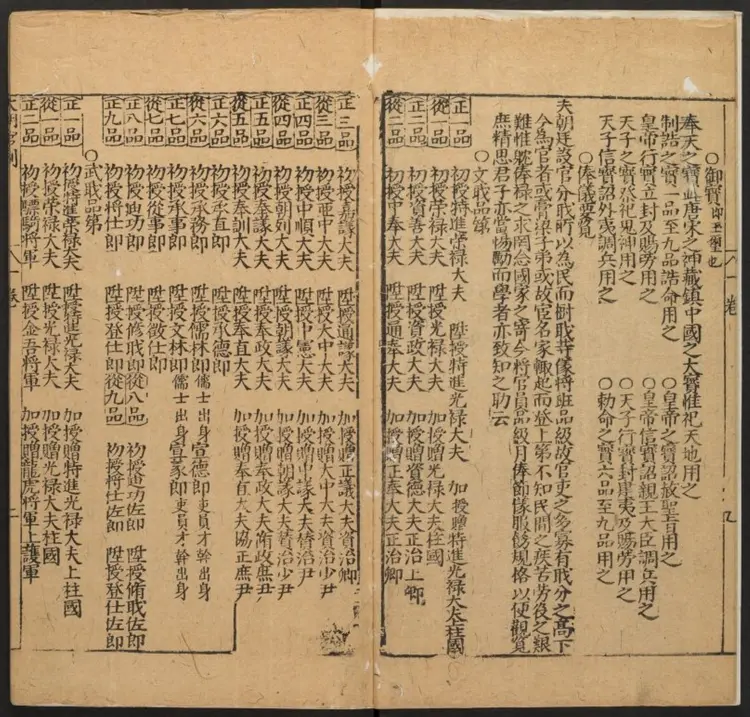 ○御寶即玉璽也
奉天之寶此唐宋之神藏鎮中國之大寶惟祀天地用之
制誥之寶一品至九品誥命用之 ○皇帝之寶詔赦聖旨用之
皇帝行寶立封及賜勞用之 ○皇帝信寶詔親王大臣調兵用之
天子之寶祭祀鬼神用之 ○天子行寶封夷及賜勞用之
天子信寶詔外夷調兵用之 ○勅命之寶六品至九品用之
○俸議要覽
夫朝廷設官分職所以為民而樹職等像將班品級故官吏之多寡有職分之高下
今為官者或膏梁子弟或故官名家輙起而登上第不知民間之疾苦勞役之艱
難惟躭俸禄之求罔念國家之寄今將官員品級月俸節様服餙規格以便觀覽
庶精思君子亦當惕勵而學者亦致知之助云
○文職品第
正一品 初授特進榮禄大夫 陞授特進光禄大夫 加授贈特進光禄大夫左柱國
從一品 初授榮禄大夫 陞授光禄大夫 加授贈光禄大夫柱國
正二品 初授資善大夫 陞授資政大夫 加授贈資德大夫正治上卿
從二品 初授中奉大夫 陞授通奉大夫 加授贈正奉大夫正治卿
正三品 初授嘉議大夫 陞授通議大夫 加授贈正議大夫資治卿
從三品 初授亜中大夫 陞授大中大夫 加授贈大中大夫資治少尹
正四品 初授中順大夫 陞授中憲大夫 加授贈中議大夫賛治尹
從四品 初授朝列大夫 陞授朝議大夫 加授贈朝議大夫賛治少尹
正五品 初授奉議大夫 陞授奉政大夫 加授贈奉政大夫脩政庶尹
從五品 初授奉訓大夫 陞授奉直大夫 加授贈奉直大夫協正庶尹
正六品 初授承直郎 陞授承德郎
從六品 初授承務郎 陞授儒林郎儒士出身 宣德郎吏員才幹出身
正七品 初授承事郎 陞授文林郎儒士出身宣義郎吏員才幹出身
從七品 初授從事郎 陞授徴仕郎
正八品 初授迪功郎 陞授修職郎從八品 初授迪功佐郎 陞授脩職佐郎
正九品 初授將仕郎 陞授登仕郎從九品 初授將仕佐郎 陞授登仕佐郎
○武職品第
正一品 初授特進榮禄大夫 陞授特進光禄大夫 加授贈特進光禄大夫上柱國
從一品 初授榮禄大夫 陞授光禄大夫 加授贈光禄大夫柱國
正二品 初授驃騎將軍 陞授金吾將軍 加授贈龍虎將軍上護軍